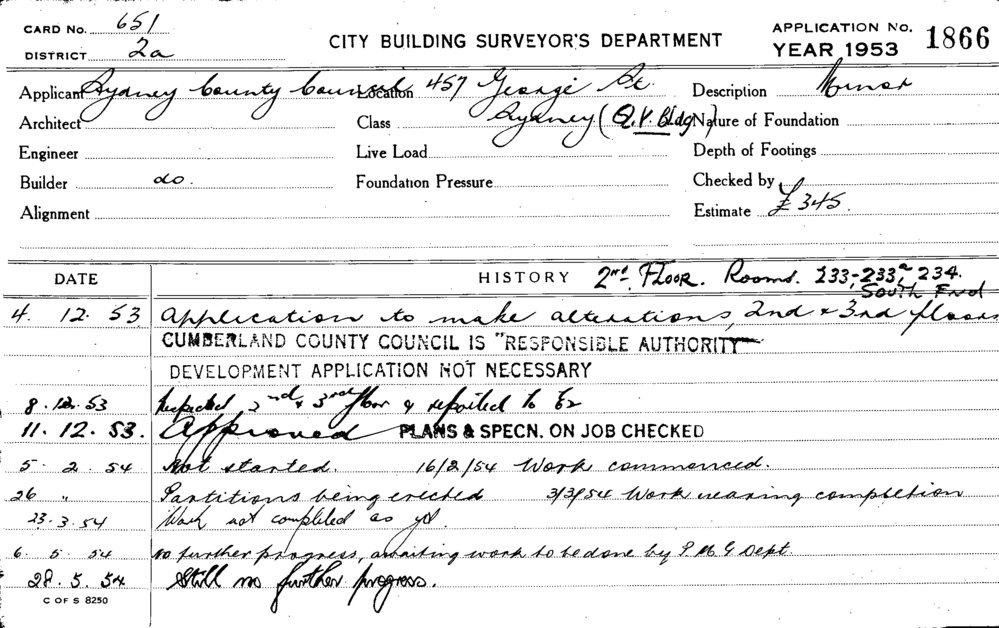 CARD No. 651
DISTRICT 2a
CITY BUILDING SURVEYOR'S DEPARTMENT
APPLICATION No. 1866
YEAR 1953
Applicant Sydney County Council Location 457 George St. Description Minor
Architect Class Sydney (Q.V. Bldg) Nature of Foundation
Engineer Live Load Depth of Footings
Builder do. Foundation Pressure Checked by
Alignment Estimate £345.
DATE HISTORY 2nd. FLOOR. Rooms. 233,-233a, 234.
South End
4. 12. 53 Application to make alterations, 2nd & 3rd floors
CUMBERLAND COUNTY COUNCIL IS "RESPONSIBLE AUTHORITY
DEVELOPMENT APPLICATION NOT NECESSARY
8. 12. 53 Inspected 2nd & 3rd floor & reported to
11. 12. 53. Approved PLANS & SPECN. ON JOB CHECKED
5. 2. 54 Not started. 16/2/54 Work commenced.
26 " Partitions being erected 3/3/54 Work nearing completion
23. 3. 54 Work not completed as yet.
6. 5. 54 no further progress, awaiting work to be done by P.M.G Dept.
28. 5. 54 Still no further progress.
C OF S 8250